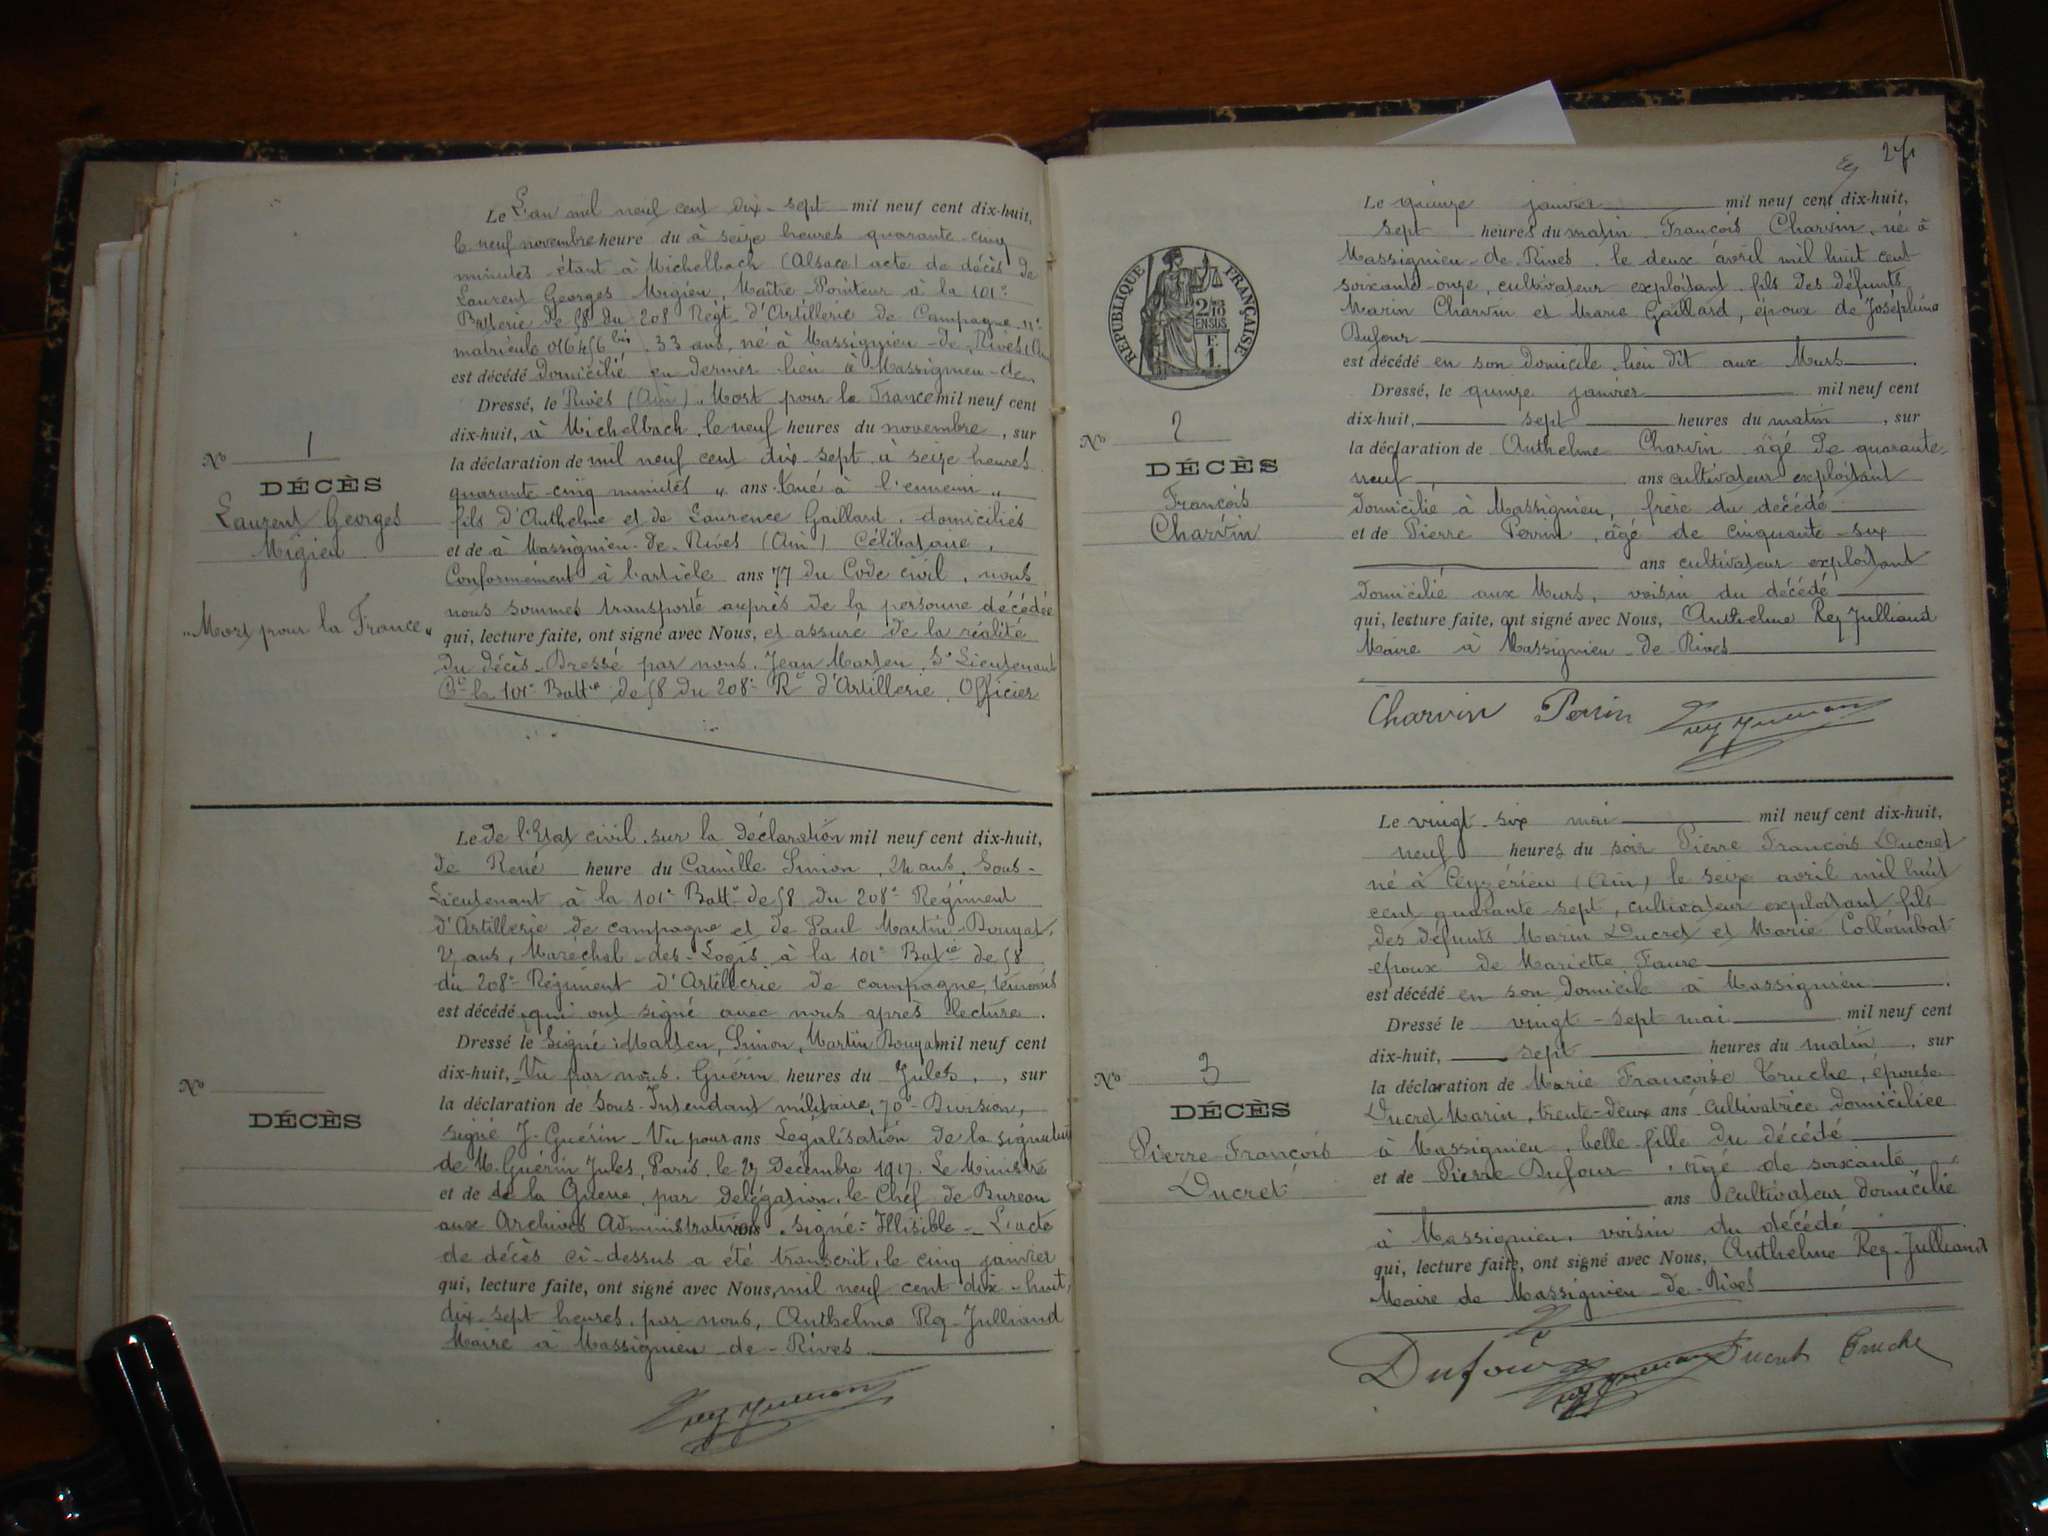 Le L'an mil neuf cent dix-sept mil neuf cent dix-huit,
le neuf novembre heure du à seize heures quarante-cinq
minutes étant à Michelbach (Alsace) acte de décès de
Laurent Georges Migieu, Maître-Pointeur à la 101e
Batterie de 58 du 208 Régt d'Artillerie de Campagne, no
matricule 33 ans, né à Massignieu-de-Rives (Ain
est décédé domicilié en dernier lieu à Massignieu-de-
Dressé, le Rives (Ain) „Mort pour la France mil neuf cent
dix-huit, à Michelbach, le neuf heures du novembre, sur
No 1
la déclaration de mil neuf cent dix-sept à seize heures
DÉCÈS
quarante cinq minutes „ ans Tué à l'ennemi „
Laurent Georges
fils d'Anthelme et de Laurence Gaillard, domiciliés
Migieu
et de à Massignieu-de-Rives (Ain) Célibataire.
Conformément à l'article ans 77 du Code civil, nous
nous sommes transporté auprès de la personne décédée
„Mort pour la France„
qui, lecture faite, ont signé avec Nous, et assuré de la réalité
du décès. Dressé par nous, Jean Marten, Ss Lieutenant
Ct la 101e Battie de 58 du 208e Rt d'Artillerie, Officier
Le de l'Etat civil, sur la déclaration mil neuf cent dix-huit,
de René heure du Camille Simon, 24 ans, Sous-
Lieutenant à la 101e Battie de 58 du 208e Régiment
d'Artillerie de campagne et de Paul Martin-Bouyat,
ans, Maréchal-des-Logis à la 101e Batie de 58
du 208e Régiment d'Artillerie de campagne, témoins
est décédé qui ont signé avec nous après lecture.
Dressé le Signé: Marten, Simon, Martin Bouyat mil neuf cent
dix-huit, Vu par nous, Guérin heures du Jules, , sur
No
la déclaration de Sous-Intendant militaire, 70e Division,
DÉCÈS
signé J. Guérin – Vu pour ans Légalisation de la signature
de M. Guérin Jules, Paris, le 27 Décembre 1917. Le Ministre
et de de la Guerre, par délégation, le Chef de Bureau
aux Archives Administratives ans signé: Illisible – L'acte
de décès ci-dessus a été transcrit, le cinq janvier
qui, lecture faite, ont signé avec Nous, mil neuf cent dix-huit,
dix-sept heures, par nous, Anthelme Rey-Julliand
Maire à Massignieu-de-Rives
Rey Julliand
271
Le quinze janvier mil neuf cent dix-huit,
sept heures du matin François Charvin, né à
Massignieu-de-Rives le deux avril mil huit cent
soixante-onze, cultivateur exploitant, fils des défunts
Marin Charvin et Marie Gaillard, époux de Joséphine
Dufour
RÉPUBLIQUE FRANÇAISE
2/10 EN SUS
F.
1.
est décédé en son domicile, lieu dit aux Murs
Dressé, le quinze janvier mil neuf cent
dix-huit, sept heures du matin, sur
No 2
la déclaration de Anthelme Charvin âgé de quarante-
DÉCÈS
neuf, ans cultivateur exploitant
François
domicilié à Massignieu, frère du décédé
Charvin
et de Pierre Perrin, âgé de cinquante-six
ans cultivateur exploitant
domicilié aux Murs, voisin du décédé
qui, lecture faite, ont signé avec Nous, Anthelme Rey Julliand
Maire à Massignieu-de-Rives
Charvin Perrin Rey Julliand
Le vingt-six mai mil neuf cent dix-huit,
neuf heures du soir Pierre François Ducret
né à Ceyzérieu (Ain) le seize avril mil huit
cent quarante-sept, cultivateur exploitant, fils
des défunts Marin Ducret et Marie Collombat
époux de Mariette Faure
est décédé en son domicile à Massignieu.
Dressé le vingt-sept mai mil neuf cent
dix-huit, sept heures du matin, sur
No 3
la déclaration de Marie Françoise Truche, épouse
DÉCÈS
Ducret Marin, trente-deux ans cultivatrice domiciliée
Pierre-François
à Massignieu, belle-fille du décédé
Ducret
et de Pierre Dufour, âgé de soixante
ans cultivateur domicilié
à Massignieu, voisin du décédé
qui, lecture faite, ont signé avec Nous, Anthelme Rey-Julliand
Maire de Massignieu-de-Rives
Dufour Rey Julliand Ducret Truche